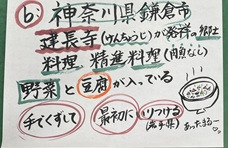 ⑥ 神奈川県鎌倉市
建長寺(けんちょうじ)が発祥の郷土
料理 精進料理(肉魚なし)
野菜と豆腐が入っている
手でくずして 最初に りつける
あったまるー